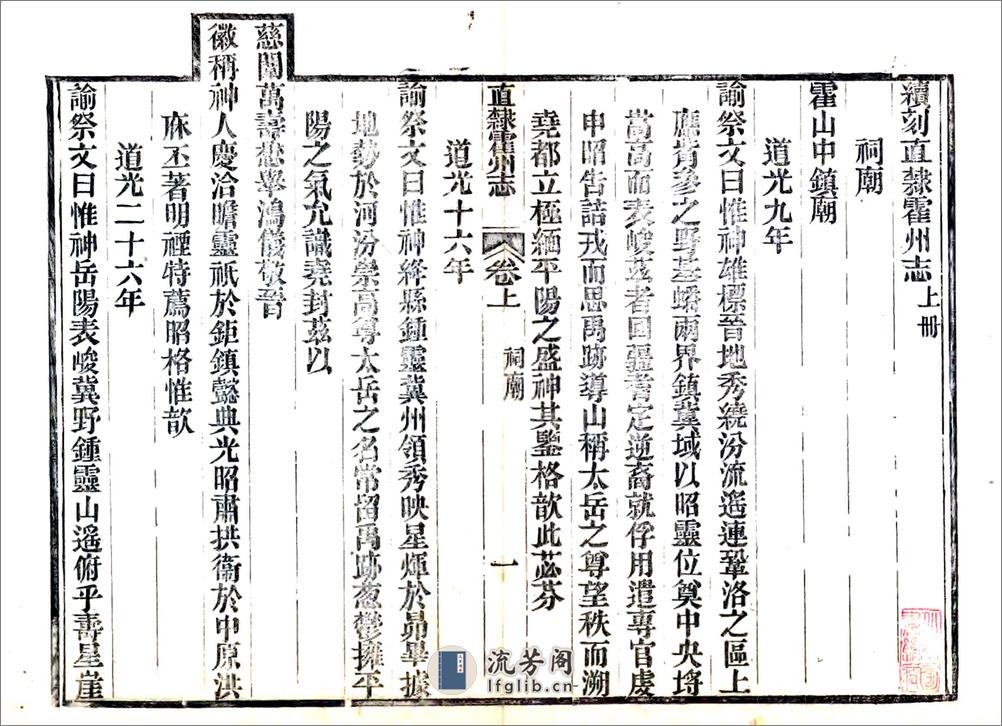 續刻直隸霍州志上冊
祠廟
霍山中鎮廟
道光九年
諭祭文曰惟神雄標晉地秀繞汾流遙連鞏洛之區上
應觜參之野基蟠兩界鎮冀域以昭靈位奠中央埒
嵩高而表峻茲者回疆耆定逆裔就俘用遣專官虔
申昭告詰戎而思禹跡導山稱太岳之尊望秩而溯
堯都立極緬平陽之盛神其鑒格歆此苾芬
直隸霍州志 卷上 祠廟 一
道光十六年
諭祭文曰惟神絳縣鍾靈冀州領秀映星煇於昴畢據
地勢於河汾崇高尊太岳之名常留禹跡葱鬱擁平
陽之氣允識堯封茲以
慈闈萬壽懋舉鴻儀敬晉
徽稱神人慶洽瞻靈祇於鉅鎮懿典光昭肅拱衞於中原洪
庥丕著明禋特薦昭格惟歆
道光二十六年
諭祭文曰惟神岳陽表峻冀野鍾靈山遙俯乎壽星崖
流芳阁
lfglib.cn